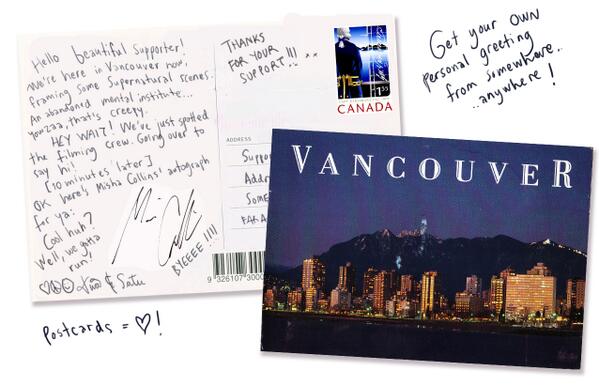 Hello beautiful Supporter!
We're here in Vancouver now,
framing some Supernatural scenes.
An abandoned mental institute...
yowzaa, that's creepy.
HEY WAIT! We've just spotted
the filming crew. Going over to
say hi.
[10 minutes later]
OK here's Misha Collins' autograph
for ya:
Cool huh?
Well, we gotta
run!
& Satu
BYEEEE !!!!
THANKS
FOR YOUR
SUPPORT!!!
1.55
CANADA
ADDRESS
Suppo
Addr
Some
FAR A
9 326107 3000
VANCOUVER
Get your own
personal greeting
from somewhere..
..anywhere!
Postcards = ♡!